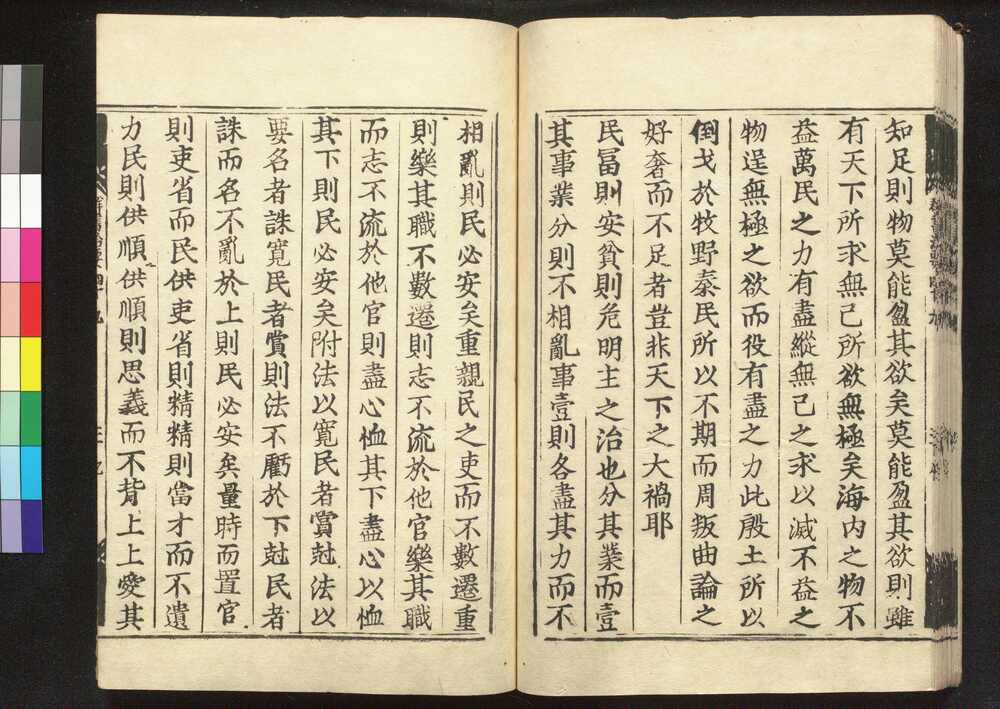 知足則物莫能盈其欲矣莫能盈其欲則雖
有天下所求無已所欲無極矣海内之物不
益萬民之力有盡縱無已之求以滅不益之
物逞無極之欲而役有盡之力此殷土所以
倒戈於牧野秦民所以不期而周叛曲論之
好奢而不足者豈非天下之大禍耶
民冨則安貧則危明主之治也分其業而壹
其事業分則不相亂事壹則各盡其力而不
相亂則民必安矣重親民之吏而不數遷重
則樂其職不數遷則志不流於他官樂其職
而志不流於他官則盡心恤其下盡心以恤
其下則民必安矣附法以寛民者賞尅法以
要名者誅寛民者賞則法不虧於下尅民者
誅而名不亂於上則民必安矣量時而置官
則吏省而民供吏省則精精則當才而不遺
力民則供順供順則思義而不背上上愛其